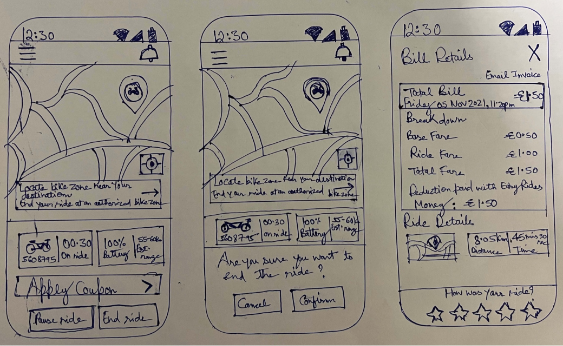 12:30
Locate bike zone near your
destination.
End your ride at an authorized bike zone
5608795
00:30
On ride
100%
Battery
55-60k
Est-
range
Apply Coupon
Pause ride
End ride
12:30
Locate bike zone near your destination
End your ride at an authorized bike zone
5608795
00:30
On ride
100%
Battery
55-60k
Est-
range
Are you sure you want to
end the ride?
Cancel
Confirm
12:30
Bill Details
X
Email Invoice
Total Bill
£1.50
Friday 05 Nov 2021, 11:20pm
Breakdown
Base Fare £0.50
Ride Fare £1.00
Total Fare £1.50
Deduction paid with Easy Rides
Money: £1.50
Ride Details
8.05km,
Distance
45 mins 30
sec
Time
How was your ride?